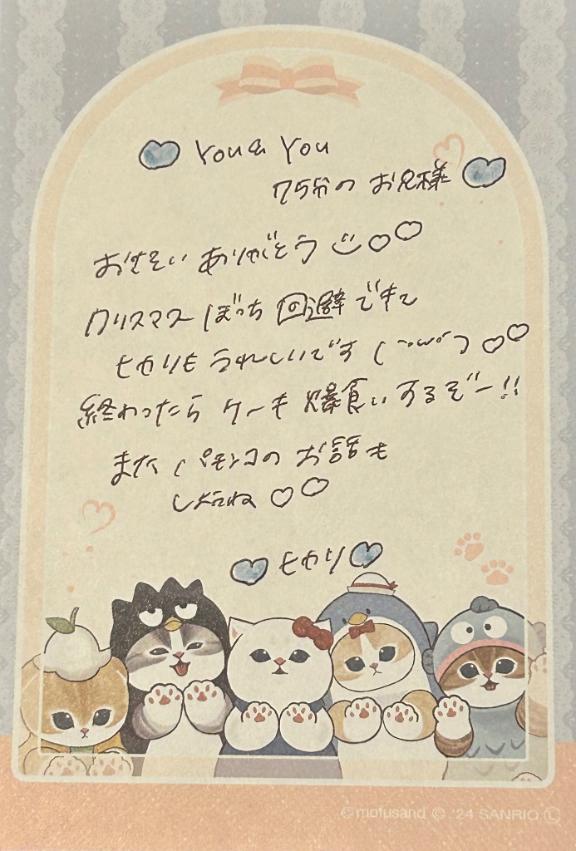 You & You
75分の お兄様
おさそい ありがとう
クリスマス ぼっち 回避 できて
ヒカリも うれしいです
終わったら ケーキ 爆食い するぞー!!
また パチンコの お話も
しようね
ヒカリ
©mofusand © '24 SANRIO Ⓛ